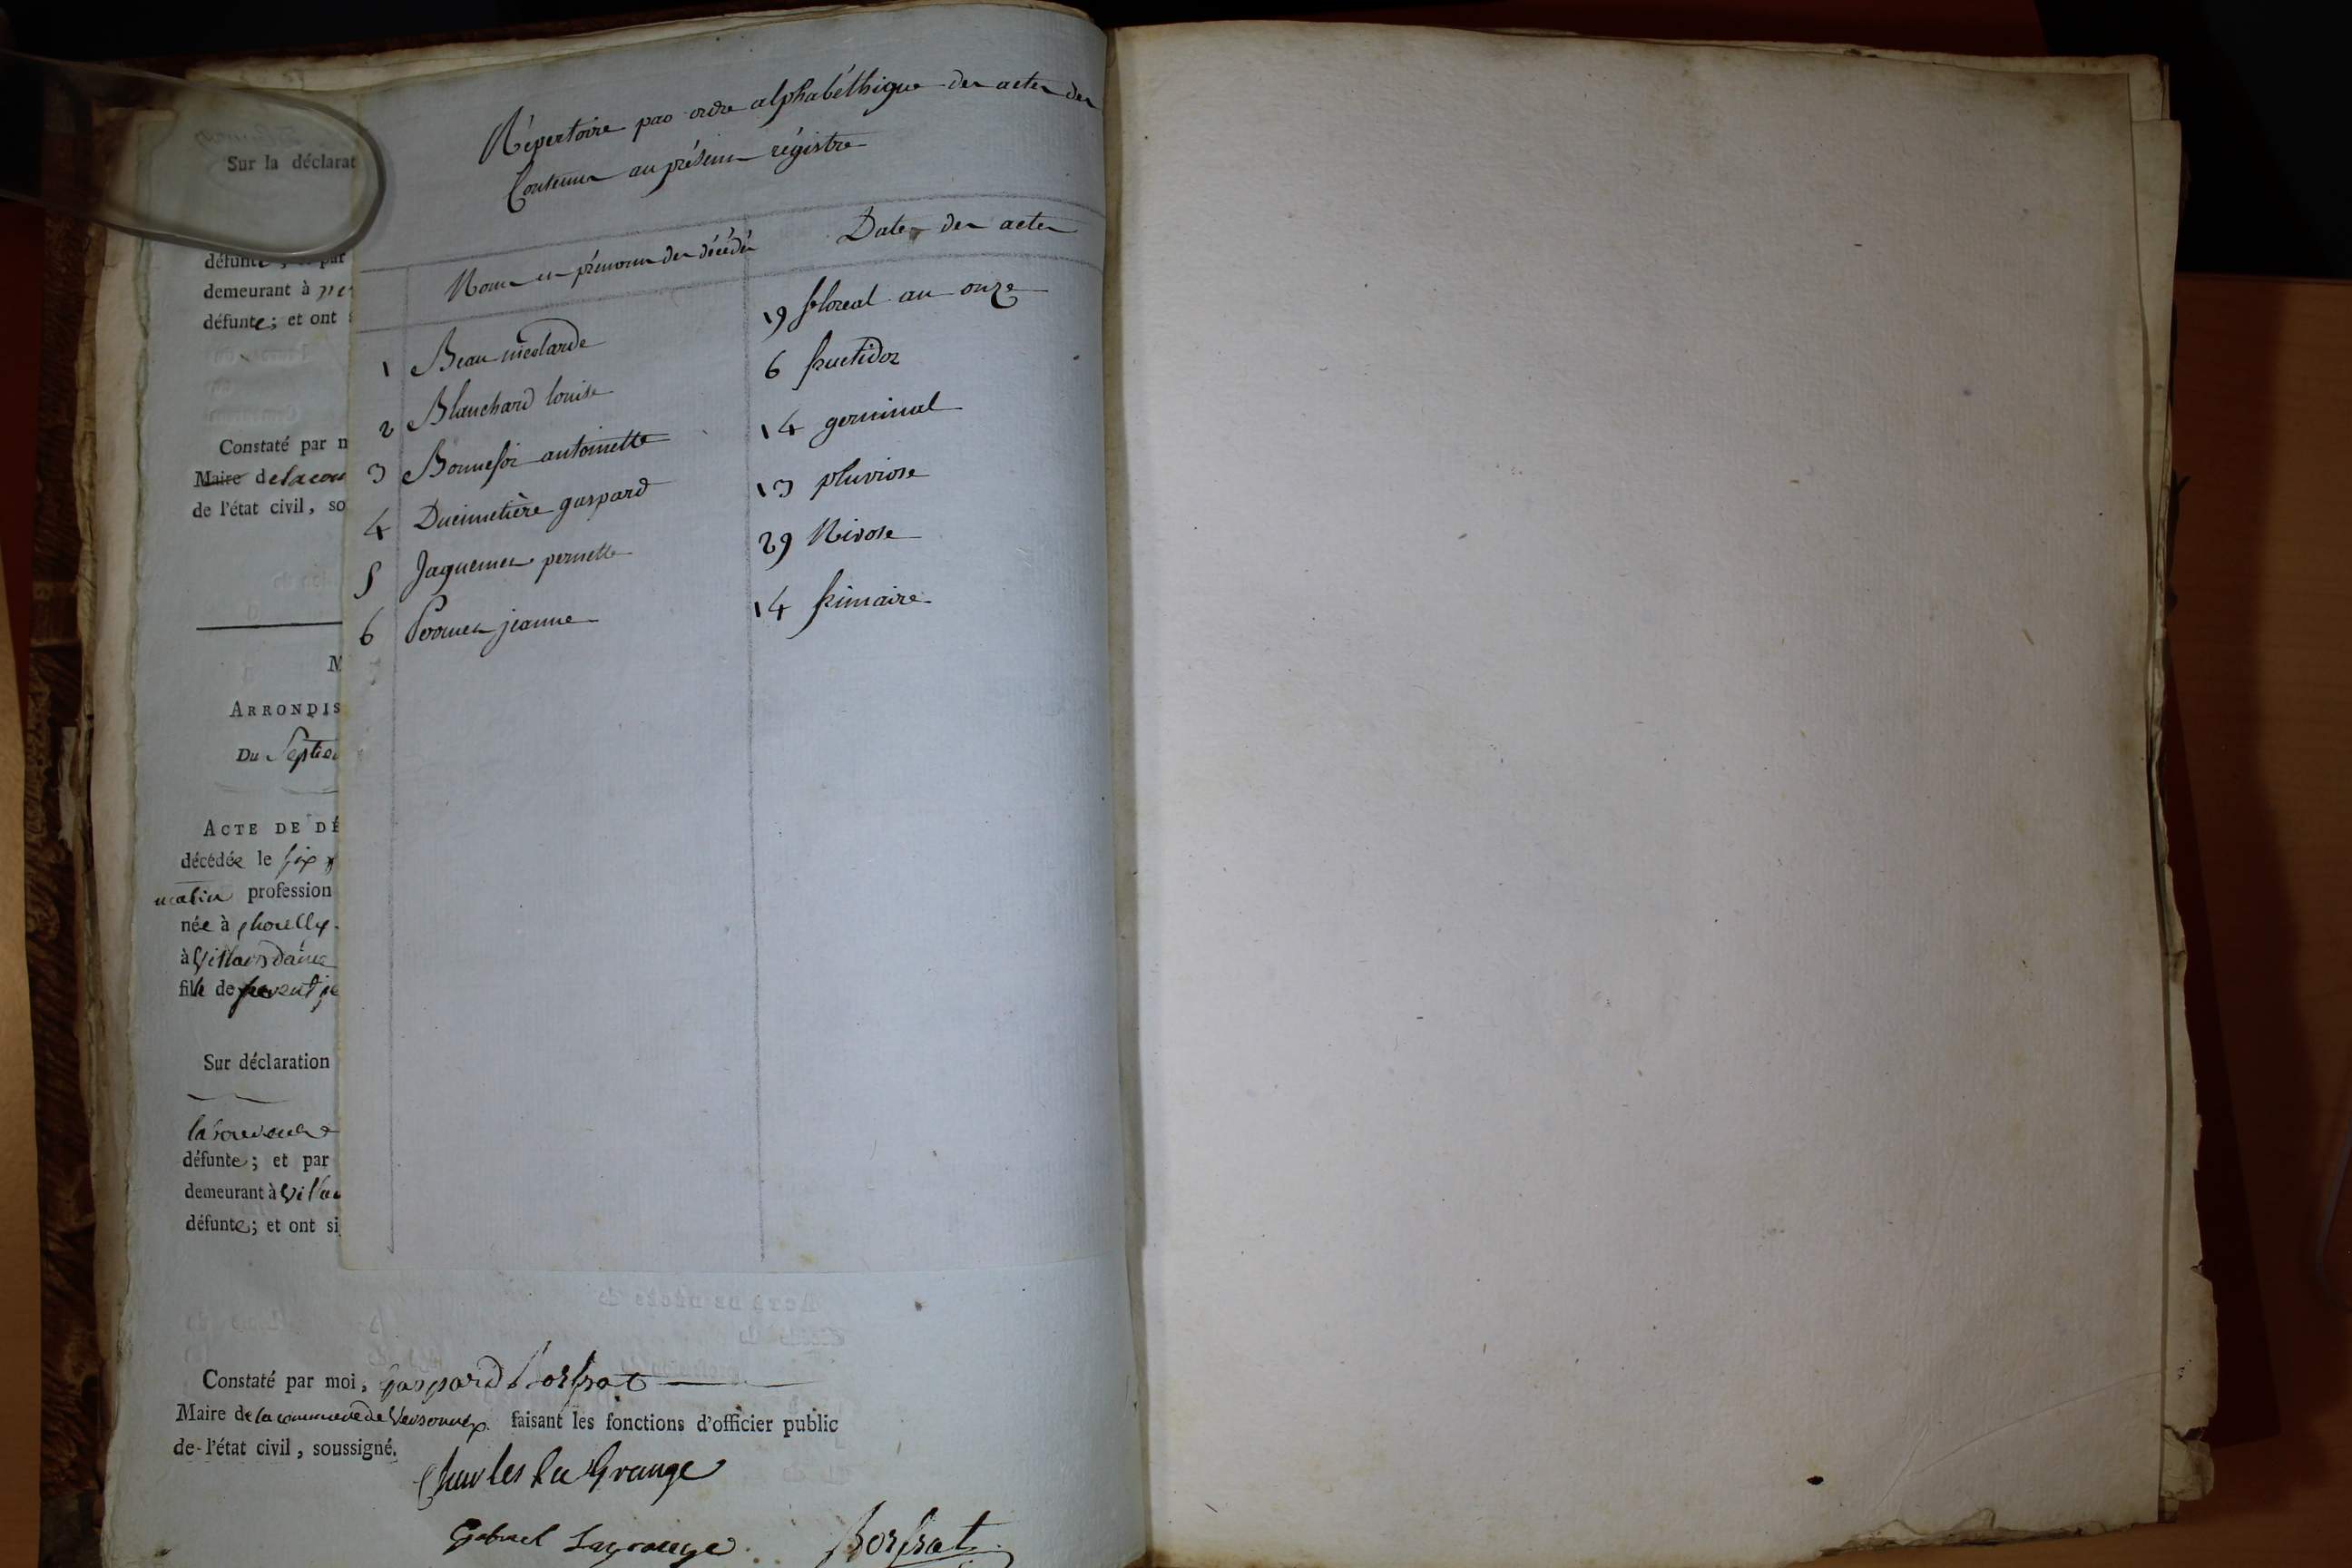 Répertoire par ordre alphabéthique des actes des
Contenus au présent régistre
Noms et prénoms des décédés
Dates des actes
1 Beau nicolarde 19 floréal an onze
2 Blanchard louise 6 fructidor
3 Bonnefoi antoinette 14 germinal
4 Ducimetière gaspard 13 pluviose
5 Jaquemet pernette 29 Nivose
6 jeanne 14 frimaire
Sur la déclarat
défunte; et par
demeurant à
défunte; et ont
Constaté par m
Maire de la com
de l'état civil, so
M
ARRONDIS
Du Septie
ACTE DE DÉ
décédée le six
matin profession
née à
à Villardame
fille de
Sur déclaration
défunte; et par
demeurant à Villa
défunte; et ont si
Constaté par moi, Gaspard Borssat
Maire de la commune de Versonnex faisant les fonctions d'officier public
de l'état civil, soussigné.
Charles La Grange
Gabriel Lagrange Borssat